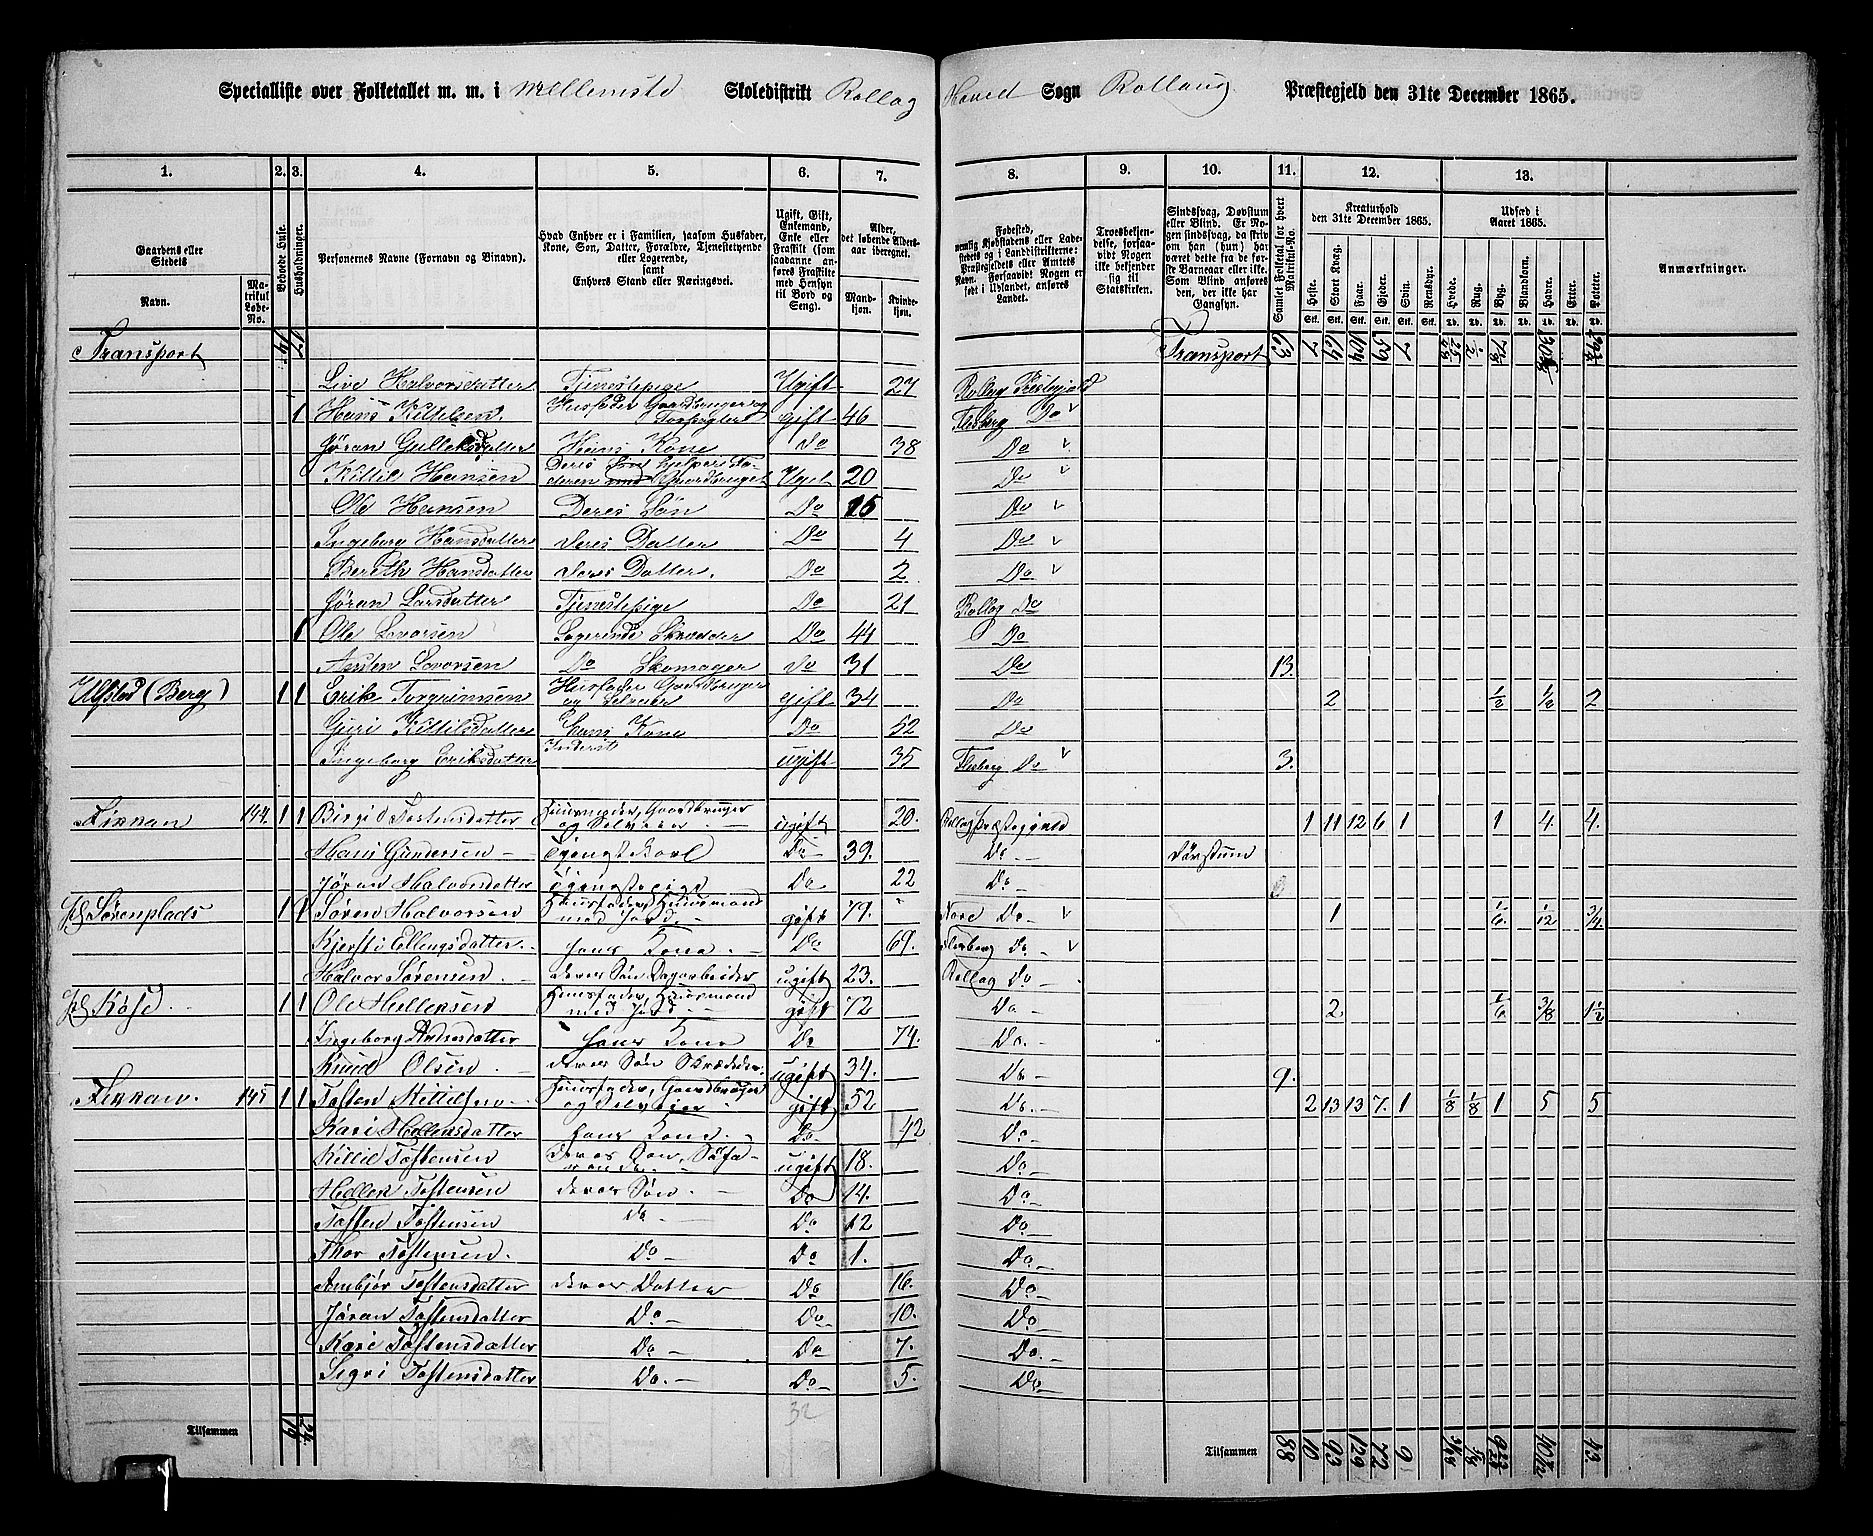 Specialliste over Folketallet m. m. i Mellemste Skoledistrikt Rollag Hoved Sogn Rollaug Præstegjeld den 31te December 1865.
1. 2. 3. 4. 5. 6. 7. 8. 9. 10. 11. 12. 13.
Gaardens eller Stedets
Navn. Matrikul Løbe-No.
Beboede Huse.
Husholdninger.
Personernes Navne (Fornavn og Binavn).
Hvad Enhver er i Familien, saasom Husfader, Kone, Søn, Datter, Forældre, Tjenestetyende eller Logerende, samt Enhvers Stand eller Næringsvei.
Ugift, Gift, Enkemand, Enke eller Fraskilt (saadanne anføres som Fraskilte med Hensyn til Bord og Seng).
Alder, det løbende Alders-aar iberegnet.
Mand-kjøn. Kvinde-kjøn.
Fødested,
Troesbekjendelse, forsaavidt Nogen ikke bekjender sig til Statskirken.
Sindssvag, Døvstum eller Blind.
Samlet Folketal for hvert Matrikul-No.
Kreaturhold den 31te December 1865.
Heste. Stort Kvæg. Faar. Gjeder. Svin. Rensdyr.
Udsæd i Aaret 1865.
Hvede. Rug. Byg. Blandkorn. Havre. Erter. Poteter.
Anmærkninger.
Transport 14 17 Transport 63 7 64 104 59 7
Live Halvorsdatter Tjenestepige Ugift 27 Rollag Prestegjeld
1 Hans Kittelsen Husfader Gaardbruger og gift 46 Flesberg Do
Jøran Gulleksdatter Hans Kone Do 38 Do
Kittil Hansen Deres Søn hjelper Faderen med Gaardbruget Ugift 20 Do
Ole Hansen Deres Søn Do 15 Do
Ingeborg Hansdatter Deres Datter Do 4 Do
Berith Hansdatter Deres Datter. Do 2 Do
Jøran Larsdatter Tjenestepige Do 21 Rollag Do
1 Ole Lovorsen Logerende Skredder Do 44 Do
Lovorsen Do Skomager Do 31 Do 13.
Ulsted (Berg) 1 1 Erik Torgrimsen Husfader Gaardbruger og Selveier gift 34 Do 2 ½ ½ 2
Guri Kittilsdatter Hans Kone Do 52 Do
Ingeborg Eriksdatter Inderst ugift 35 Flesberg Do 3.
144. 1 1 Birgid Tostensdatter Huusmoder, Gaardbruger og Selveier ugift 20. Rollag Præstegjeld 1 11 12 6 1 1 4. 4.
Hans Gundersen Tjenestekarl Do 39. Do Døvstum
Jøran Halvorsdatter Tjenestepige Do 22 Do
Pl. Sørenplads 1 1 Søren Halvorsen Huusfader, Huusmand med Jord. gift 79. Nore Do 1 1/6 1/2 3/4
Kjersti Ellingsdatter. hans Kone. Do 69. Flesberg Do
Halvor Sørensen deres Søn Dagarbeider ugift 23. Rollag Do
Pl. 1 1 Ole Hellensen Huusfader, Huusmand med Jord gift 72 Do 2 1/6 3/8 1½
Ingeborg hans Kone Do 74. Do.
Knud Olsen. deres Søn Skrædder. ugift 34. Do 9.
145 1 1 Tosten Kittilsen Huusfader, Gaardbruger og Selveier gift 52 Do. 2 13 13 7. 1 1/8 1/8 1 5 5
Kari Hellensdatter hans Kone. Do 42 Do
Kittil Tostensen deres Søn, Søfarende. ugift 18. Do
Hellek Tostensen deres Søn. Do 14. Do
Tosten Tostensen Do Do 12 Do
Thor Tostensen. Do Do 1. Do
Ambjør Tostensdatter deres Datter Do 16. Do
Jøran Tostensdatter Do Do 10. Do
Kari Tostensdatter Do Do 7. Do.
Sigri Tostensdatter Do. Do 5. Do
32
Tilsammen 19 24. Tilsammen 88 10 93 129 72 9 43.